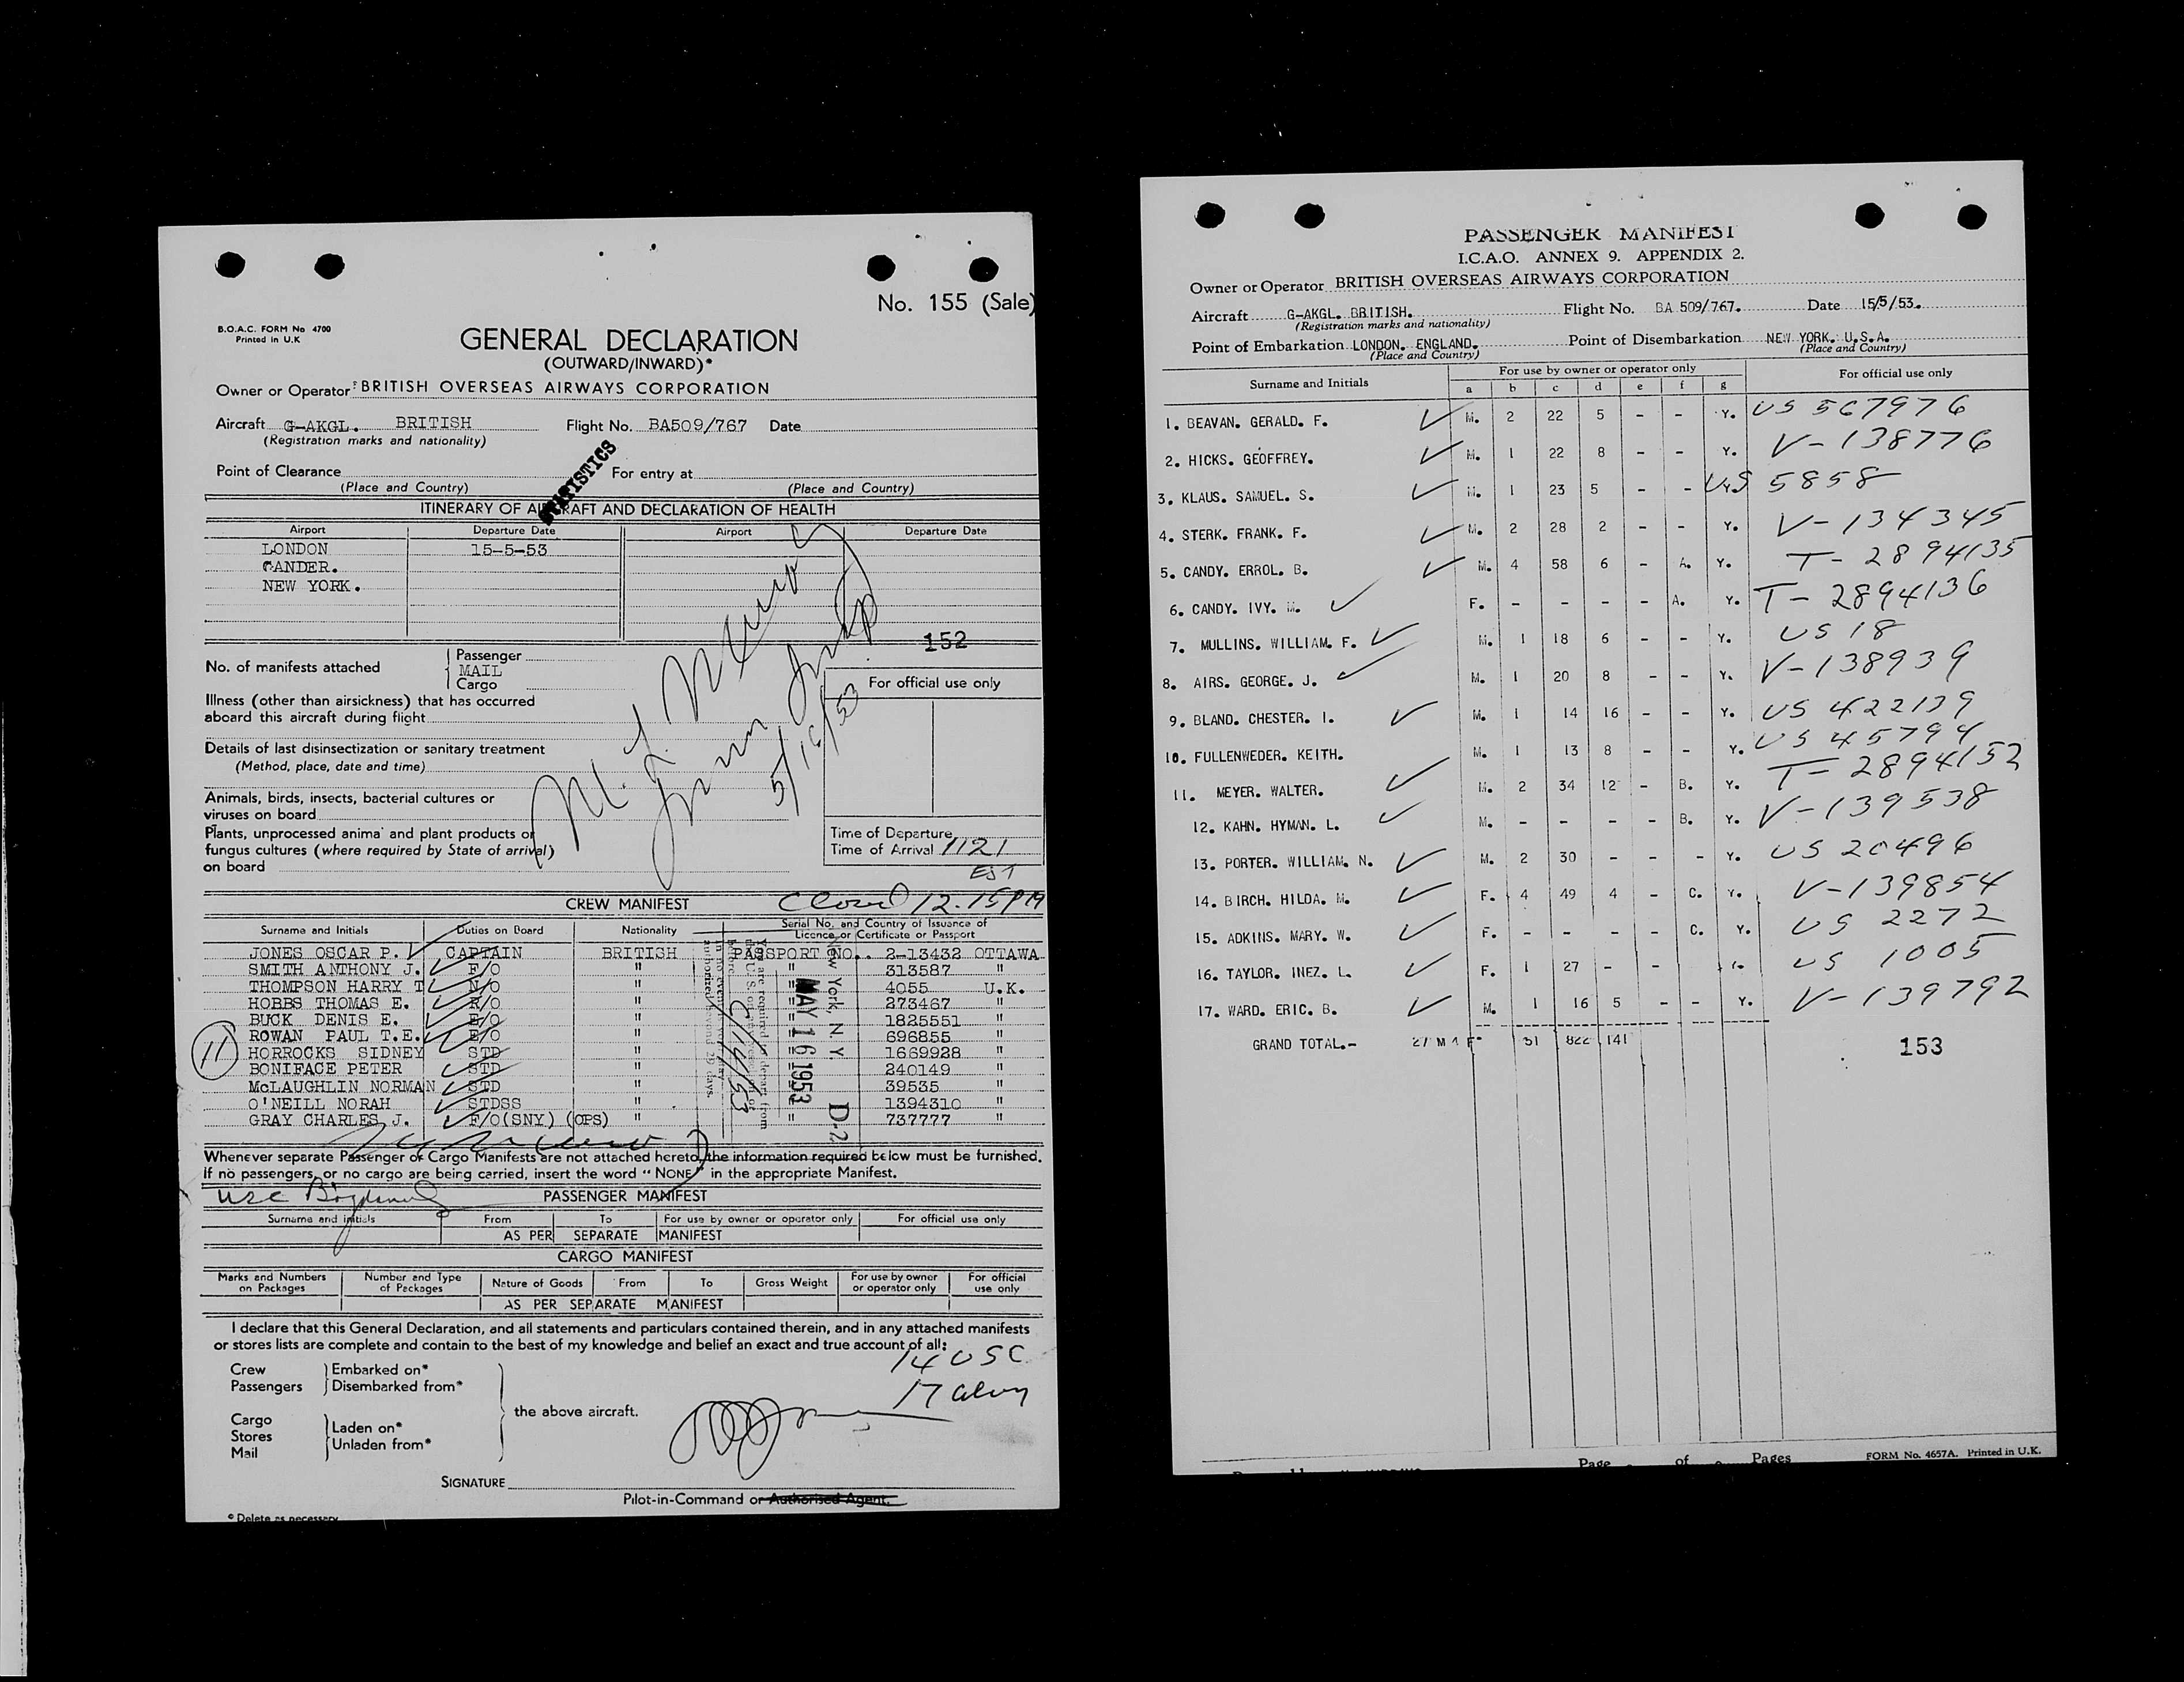 No. 155 (Sale)
B.O.A.C. FORM No 4700
Printed in U.K
GENERAL DECLARATION
(OUTWARD/INWARD)*
Owner or Operator BRITISH OVERSEAS AIRWAYS CORPORATION
Aircraft G-AKGL. BRITISH Flight No. BA509/767 Date
(Registration marks and nationality)
STATISTICS
Point of Clearance For entry at
(Place and Country) (Place and Country)
ITINERARY OF AIRCRAFT AND DECLARATION OF HEALTH
Airport Departure Date Airport Departure Date
LONDON 15-5-53
GANDER.
NEW YORK.
152
No. of manifests attached Passenger
MAIL
Cargo
For official use only
Illness (other than airsickness) that has occurred
aboard this aircraft during flight
5/16/53
Details of last disinsectization or sanitary treatment
(Method, place, date and time)
Animals, birds, insects, bacterial cultures or
viruses on board
Plants, unprocessed animal and plant products or
fungus cultures (where required by State of arrival)
on board
Time of Departure
Time of Arrival 1121
EST
CREW MANIFEST Closed 12.15 PM
Surname and Initials Duties on Board Nationality Serial No. and Country of Issuance of
Licence or Certificate or Passport
JONES OSCAR P. CAPTAIN BRITISH PASSPORT NO.. 2-13432 OTTAWA
SMITH ANTHONY J. F/O " " 313587 "
THOMPSON HARRY T N/O " " 4055 U.K.
HOBBS THOMAS E. R/O " " 273467 "
BUCK DENIS E. E/O " " 1825551 "
ROWAN PAUL T.E. E/O " " 696855 "
11
HORROCKS SIDNEY STD " " 1669928 "
BONIFACE PETER STD " " 240149 "
McLAUGHLIN NORMAN STD " " 39535 "
O'NEILL NORAH STDSS " " 1394310 "
GRAY CHARLES J. F/O(SNY) (OPS) " " 737777 "
New York, N.Y. D-2
MAY 16 1953
Whenever separate Passenger or Cargo Manifests are not attached hereto, the information required below must be furnished.
If no passengers, or no cargo are being carried, insert the word "NONE" in the appropriate Manifest.
PASSENGER MANIFEST
Surname and initials From To For use by owner or operator only For official use only
AS PER SEPARATE MANIFEST
CARGO MANIFEST
Marks and Numbers on Packages Number and Type of Packages Nature of Goods From To Gross Weight For use by owner or operator only For official use only
AS PER SEPARATE MANIFEST
I declare that this General Declaration, and all statements and particulars contained therein, and in any attached manifests
or stores lists are complete and contain to the best of my knowledge and belief an exact and true account of all:
14 USC
17 alien
Crew Embarked on*
Passengers Disembarked from*
the above aircraft.
Cargo
Stores Laden on*
Mail Unladen from*
SIGNATURE
Pilot-in-Command or Authorised Agent.
* Delete as necessary
PASSENGER MANIFEST
I.C.A.O. ANNEX 9. APPENDIX 2.
Owner or Operator BRITISH OVERSEAS AIRWAYS CORPORATION
Aircraft G-AKGL. BRITISH. Flight No. BA 509/767. Date 15/5/53.
(Registration marks and nationality)
Point of Embarkation LONDON. ENGLAND. Point of Disembarkation NEW YORK. U.S.A.
(Place and Country) (Place and Country)
Surname and Initials For use by owner or operator only For official use only
a b c d e f g
1. BEAVAN. GERALD. F. M. 2 22 5 - - Y. US 567976
2. HICKS. GEOFFREY. M. 1 22 8 - - Y. V-138776
3. KLAUS. SAMUEL. S. M. 1 23 5 - - Y. US 5858
4. STERK. FRANK. F. M. 2 28 2 - - Y. V-134345
5. CANDY. ERROL. B. M. 4 58 6 - A. Y. T-2894135
6. CANDY. IVY. M. F. - - - - A. Y. T-2894136
7. MULLINS. WILLIAM. F. M. 1 18 6 - - Y. US 18
8. AIRS. GEORGE. J. M. 1 20 8 - - Y. V-138939
9. BLAND. CHESTER. I. M. 1 14 16 - - Y. US 422139
10. FULLENWEDER. KEITH. M. 1 13 8 - - Y. US 45794
11. MEYER. WALTER. M. 2 34 12 - B. Y. T-2894152
12. KAHN. HYMAN. L. M. - - - - B. Y. V-139538
13. PORTER. WILLIAM. N. M. 2 30 - - - Y. US 20496
14. BIRCH. HILDA. M. F. 4 49 4 - C. Y. V-139854
15. ADKINS. MARY. W. F. - - - - C. Y. US 2272
16. TAYLOR. INEZ. L. F. 1 27 - - Y. US 1005
17. WARD. ERIC. B. M. 1 16 5 - - Y. V-139792
GRAND TOTAL.- 31 822 141
153
Page of Pages
FORM No. 4657A. Printed in U.K.